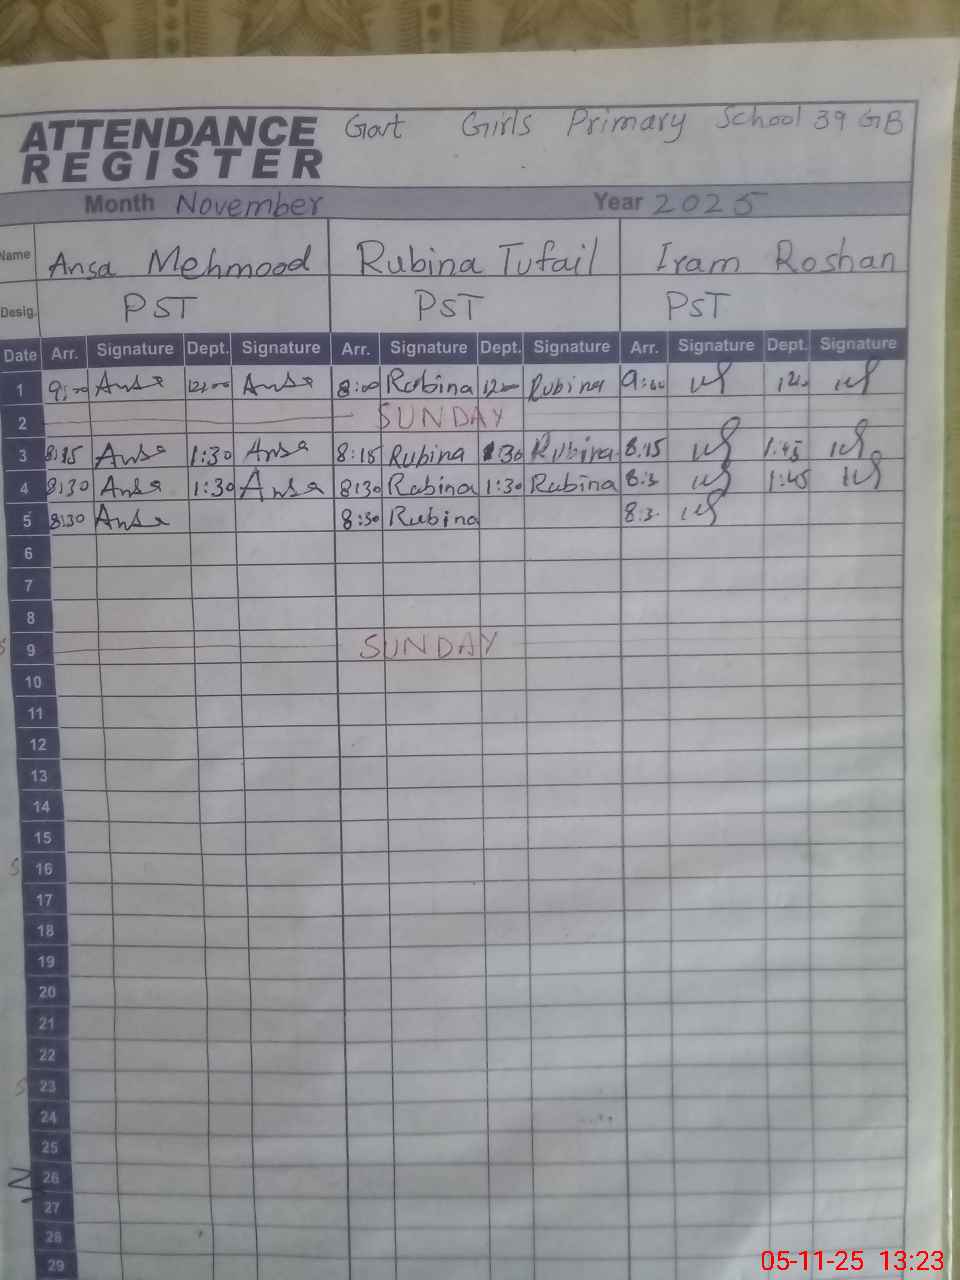 ATTENDANCE REGISTER Govt Girls Primary School 39 GB
Month November Year 2025
Name Ansa Mehmood Rubina Tufail Iram Roshan
Desig. PST PST PST
Date Arr. Signature Dept. Signature Arr. Signature Dept. Signature Arr. Signature Dept. Signature
1 9:00 Ansa 12:00 Ansa 8:00 Rubina 12:00 Rubina 9:00
2 SUNDAY
3 8:15 Ansa 1:30 Ansa 8:15 Rubina 1:30 Rubina 8:15 1:45
4 8:30 Ansa 1:30 Ansa 8:30 Rubina 1:30 Rubina 8:3. 1:45
5 8:30 Ansa 8:30 Rubina 8:3.
6
7
8
S 9 SUNDAY
10
11
12
13
14
15
S 16
17
18
19
20
21
22
S 23
24
25
26
27
28
29
05-11-25 13:23